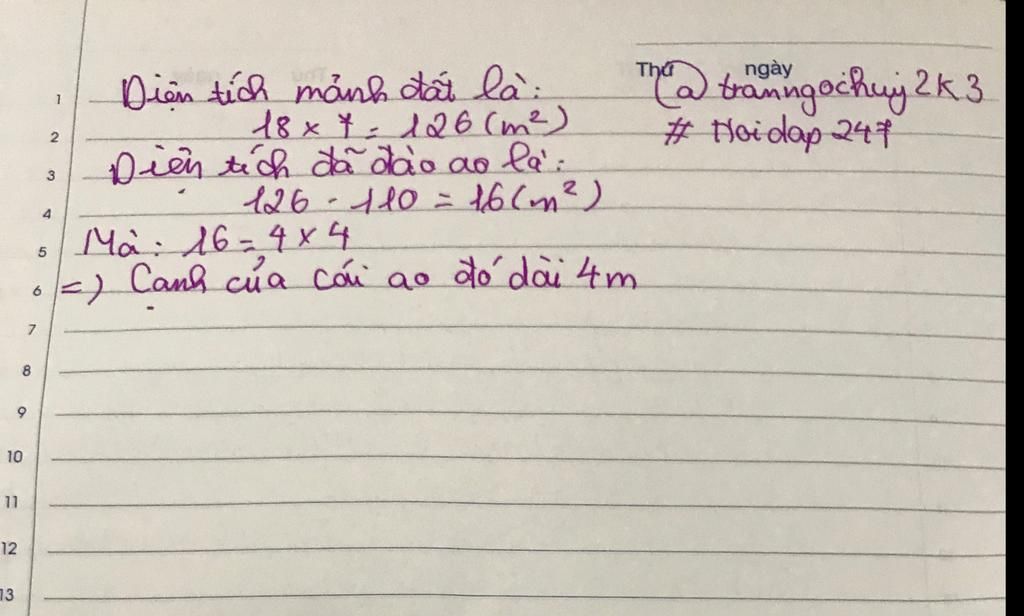 Thứ ngày
@tranngochuy2k3
#Hoidap247
1 Diện tích mảnh đất là:
2 18 x 7 = 126 (m²)
3 Diện tích đã đào ao là:
4 126 - 110 = 16 (m²)
5 Mà: 16 = 4 x 4
6 => Cạnh của cái ao đó dài 4m
7
8
9
10
11
12
13